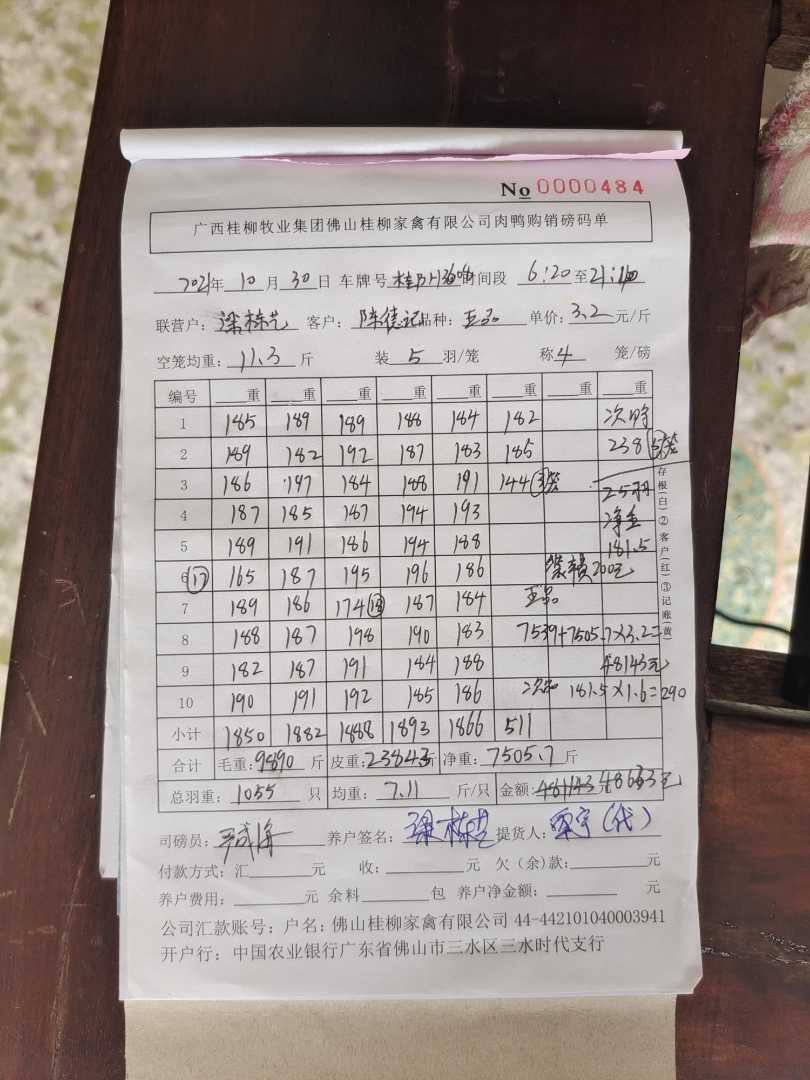 No 0000484
广西桂柳牧业集团佛山桂柳家禽有限公司肉鸭购销磅码单
2021年 10 月 30 日 车牌号 时间段 6:20 至 21:
联营户: 梁栋艺 客户: 陈德记 品种: 正品 单价: 3.2 元/斤
空笼均重: 11.3 斤 装 5 羽/笼 称 4 笼/磅
编号 重 重 重 重 重 重 重 重
1 185 189 189 188 184 182 次鸭
2 189 182 192 187 183 185 238 ⑤笼
3 186 197 184 188 191 144 ③笼 25羽
4 187 185 187 194 193 净重
5 189 191 186 194 188 181.5
6 ⑰ 165 187 195 196 186 200元
7 189 186 174 ⑱ 187 184 正品
8 188 187 198 190 183 7539+7505.7×3.2=
9 182 187 191 184 188 48143元
10 190 191 192 185 186 次品 181.5×1.6=290
小计 1850 1882 1888 1893 1866 511
合计 毛重: 9890 斤 皮重: 2384.3 斤 净重: 7505.7 斤
总羽重: 1055 只 均重: 7.11 斤/只 金额: 48633元
司磅员: 养户签名: 梁栋艺 提货人: (代)
付款方式: 汇 元 收: 元 欠(余)款: 元
养户费用: 元 余料 包 养户净金额: 元
公司汇款账号: 户名: 佛山桂柳家禽有限公司 44-442101040003941
开户行: 中国农业银行广东省佛山市三水区三水时代支行
存根(白)②客户(红)③记账(黄)